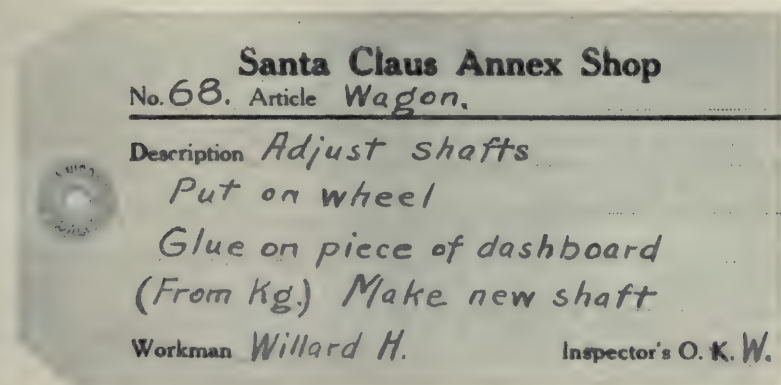 Santa Claus Annex Shop
No. 68. Article Wagon.
Description Adjust shafts
Put on wheel
Glue on piece of dashboard
(From Kg.) Make new shaft
Workman Willard H. Inspector's O. K. W.